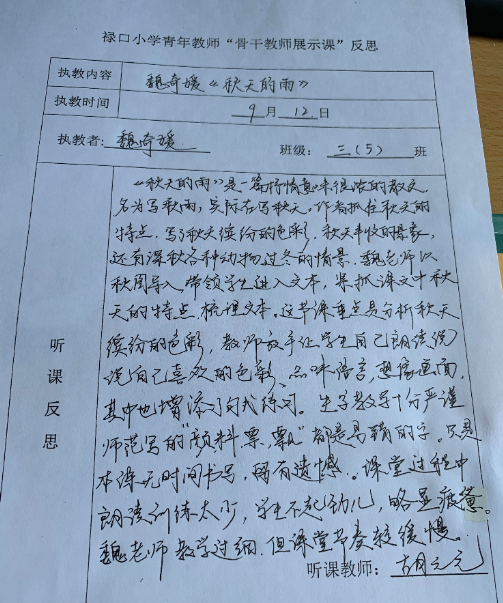 禄口小学青年教师“骨干教师展示课”反思
执教内容 魏奇媛《秋天的雨》
执教时间 9月12日
执教者: 魏奇媛 班级: 三(5)班
《秋天的雨》是一篇抒情意味很浓的散文.
名为写秋雨,实际在写秋天.作者抓住秋天的
特点.写了秋天缤纷的色彩,秋天丰收的景象,
还有深秋各种动物过冬的情景.魏老师以
秋周导入,带领学生进入文本,紧抓课文中秋
天的特点,梳理文本。这节课重点是分析秋天
缤纷的色彩,教师放手让学生自己朗读说
说自己喜欢的色彩、品味语言,想像画面,
其中也增添了句式练习。生字教学十分严谨
师范写的“颜料票,飘”都是易错的字。只是
本课无时间书写,稍有遗憾。课堂过程中
朗读训练太少,学生不起劲儿,略显疲惫。
魏老师教学过细.但课堂节奏较缓慢.
听课反思
听课教师: 胡元元